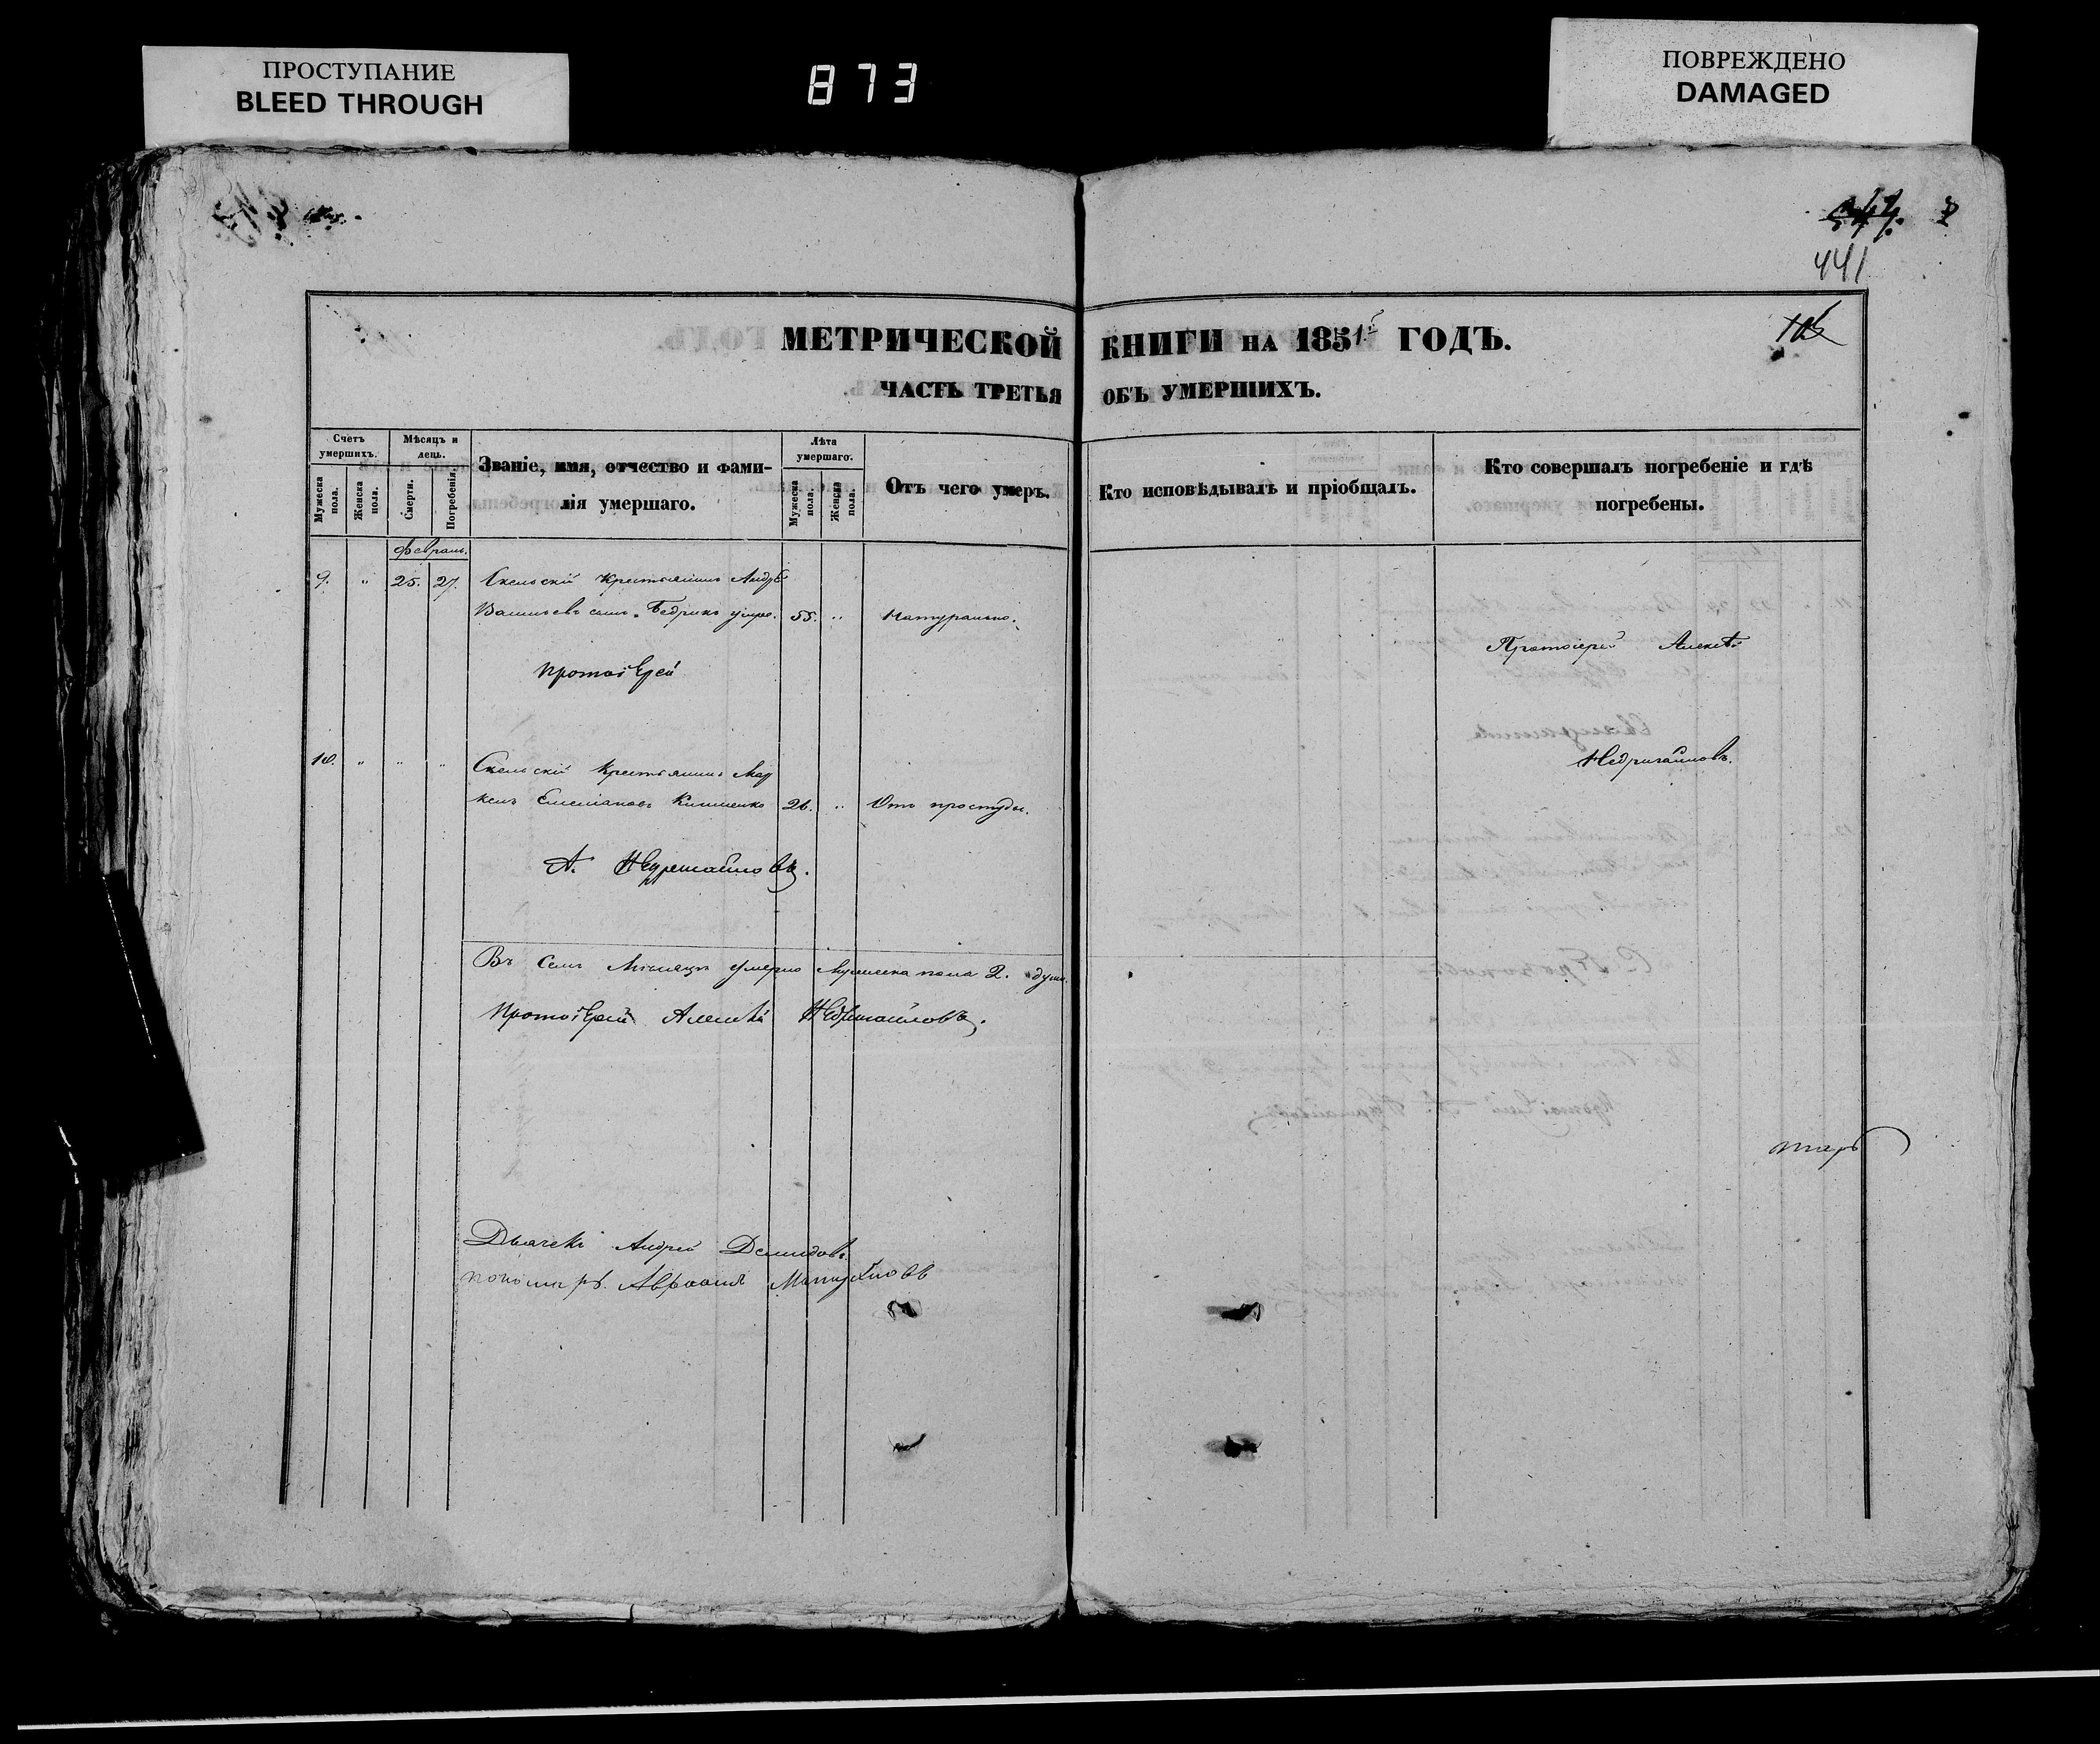 ПРОСТУПАНИЕ
BLEED THROUGH
873
ПОВРЕЖДЕНО
DAMAGED
441
МЕТРИЧЕСКОЙ КНИГИ НА 1851й ГОДЪ.
ЧАСТЬ ТРЕТЬЯ ОБЪ УМЕРШИХЪ.
Счетъ умершихъ.
Мужеска пола.
Женска пола.
Мѣсяцъ и день.
Смерти.
Погребенія.
Званіе, имя, отчество и фами-
лія умершаго.
Лѣта умершаго.
Мужеска пола.
Женска пола.
Отъ чего умеръ.
Кто исповѣдывалъ и пріобщалъ.
Кто совершалъ погребеніе и гдѣ
погребены.
Февраль.
9. " 25. 27. Скельскій Крестьянинъ Андрѣ
Васильевъ сынъ Бедрикъ умре. 55. " Натурально.
Протоіерей Алексѣй
Протоіерей
Недригайловъ.
10. " " " Скельскій Крестьянинъ
Емельяновъ 26. " Отъ простуды.
А. Недригайловъ.
Въ Семъ Мѣсяцѣ Умерло Мужеска пола 2. души
Протоіерей Алексѣй Недригайловъ.
Дьячекъ Андрей Демидовъ
пономарь